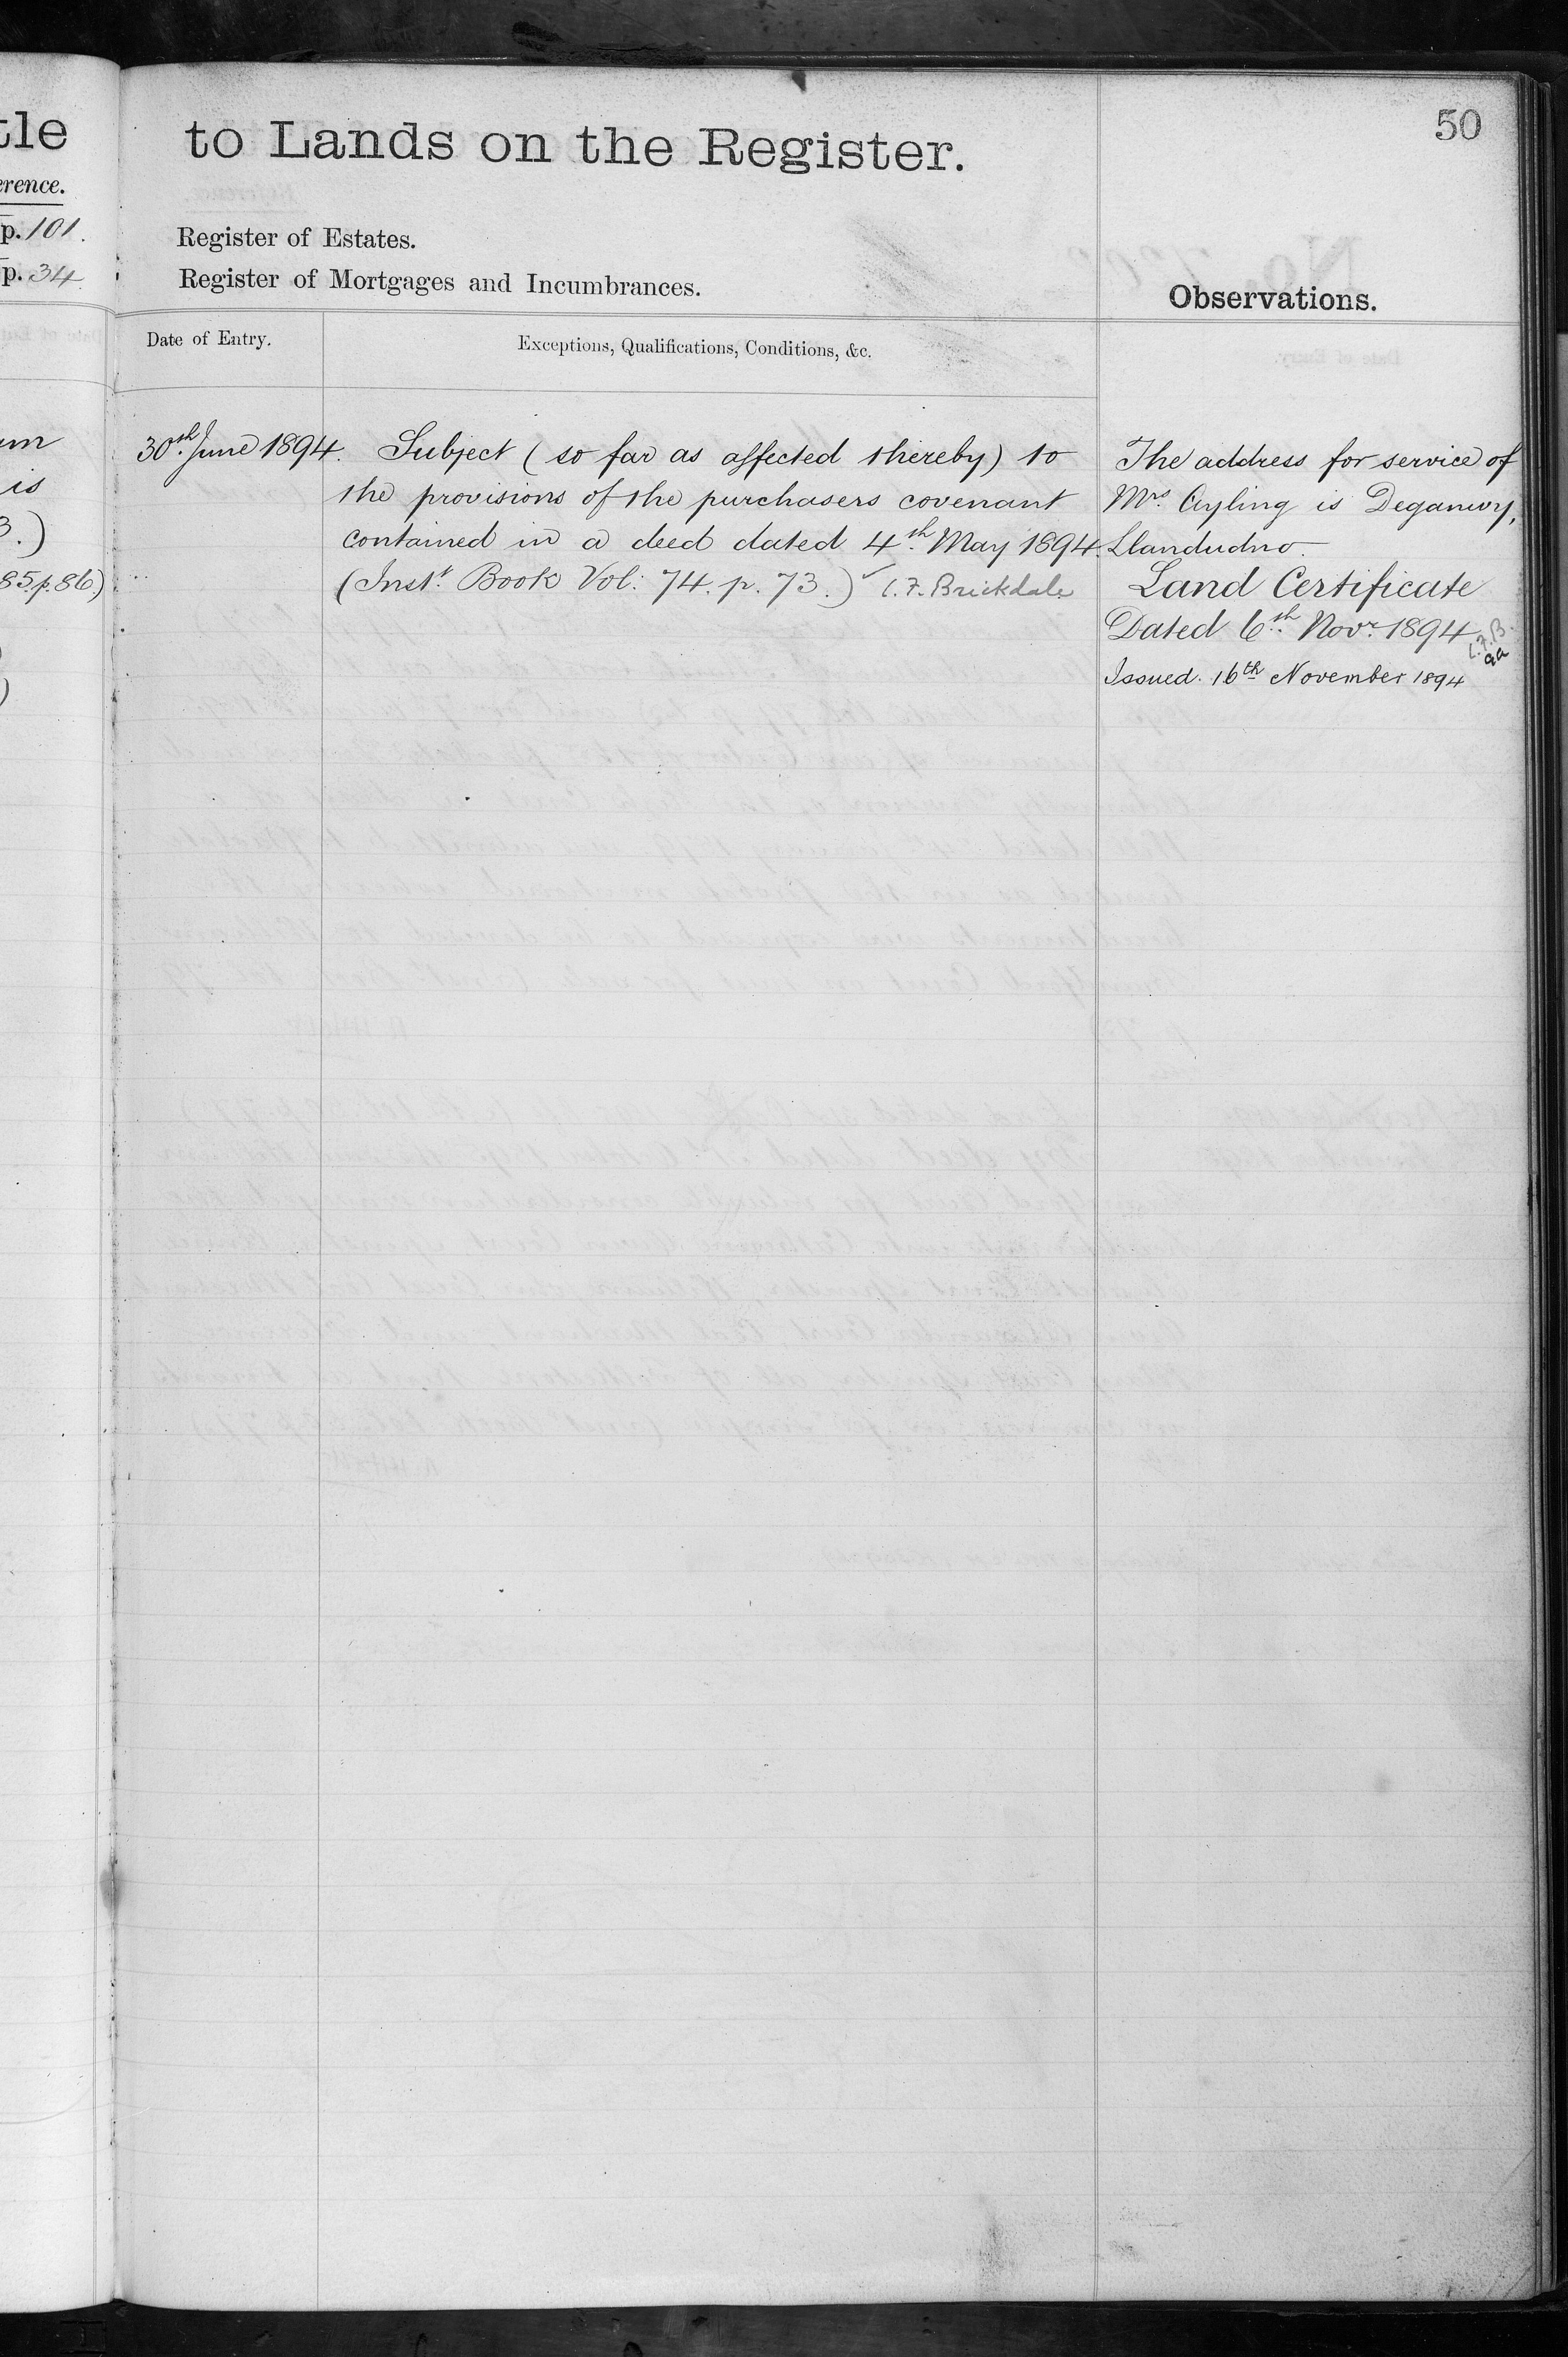 tle
erence.
p. 101.
p. 34
um
is
3.)
85 p. 86.)
50
to Lands on the Register.
Register of Estates.
Register of Mortgages and Incumbrances.
Observations.
Date of Entry.
Exceptions, Qualifications, Conditions, &c.
30th June 1894.
Subject (so far as affected thereby) to
the provisions of the purchasers covenant
contained in a deed dated 4th May 1894.
(Instt Book Vol: 74. p. 73.) C. F. Brickdale
The address for service of
Mrs Ayling is Deganwy,
Llandudno.
Land Certificate
Dated 6th Novr 1894
C.F.B.
Issued 16th November 1894